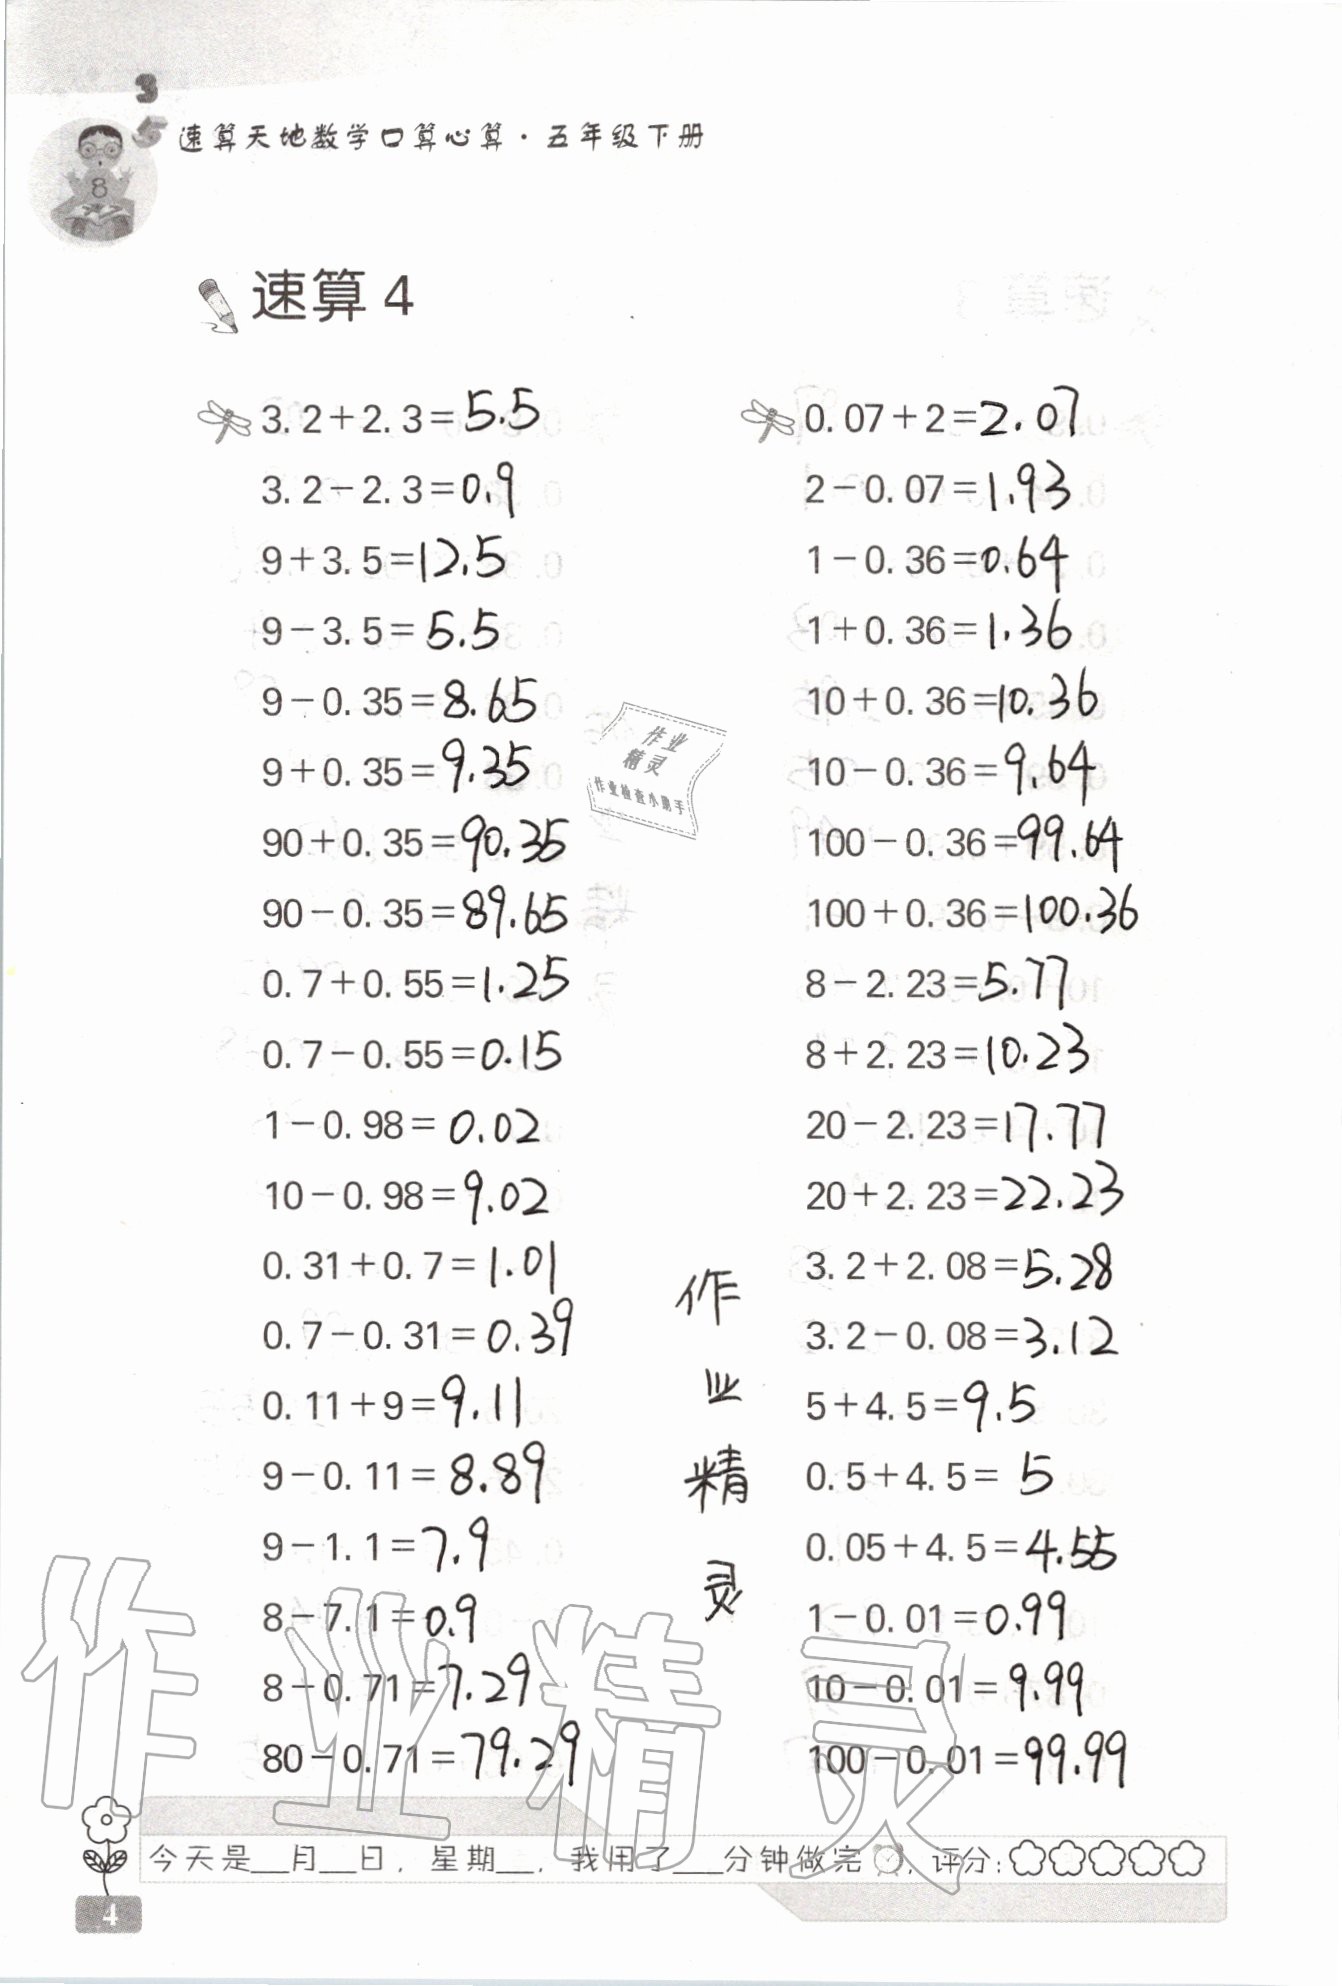 3
5
8
速算天地数学口算心算·五年级下册
速算 4
3.2+2.3=5.5
3.2-2.3=0.9
9+3.5=12.5
9-3.5=5.5
9-0.35=8.65
9+0.35=9.35
90+0.35=90.35
90-0.35=89.65
0.7+0.55=1.25
0.7-0.55=0.15
1-0.98=0.02
10-0.98=9.02
0.31+0.7=1.01
0.7-0.31=0.39
0.11+9=9.11
9-0.11=8.89
9-1.1=7.9
8-7.1=0.9
8-0.71=7.29
80-0.71=79.29
作业
精灵
作业检查小助手
作
业
精
灵
0.07+2=2.07
2-0.07=1.93
1-0.36=0.64
1+0.36=1.36
10+0.36=10.36
10-0.36=9.64
100-0.36=99.64
100+0.36=100.36
8-2.23=5.77
8+2.23=10.23
20-2.23=17.77
20+2.23=22.23
3.2+2.08=5.28
3.2-0.08=3.12
5+4.5=9.5
0.5+4.5=5
0.05+4.5=4.55
1-0.01=0.99
10-0.01=9.99
100-0.01=99.99
作业精灵
今天是__月__日，星期__，我用了___分钟做完，评分：
4